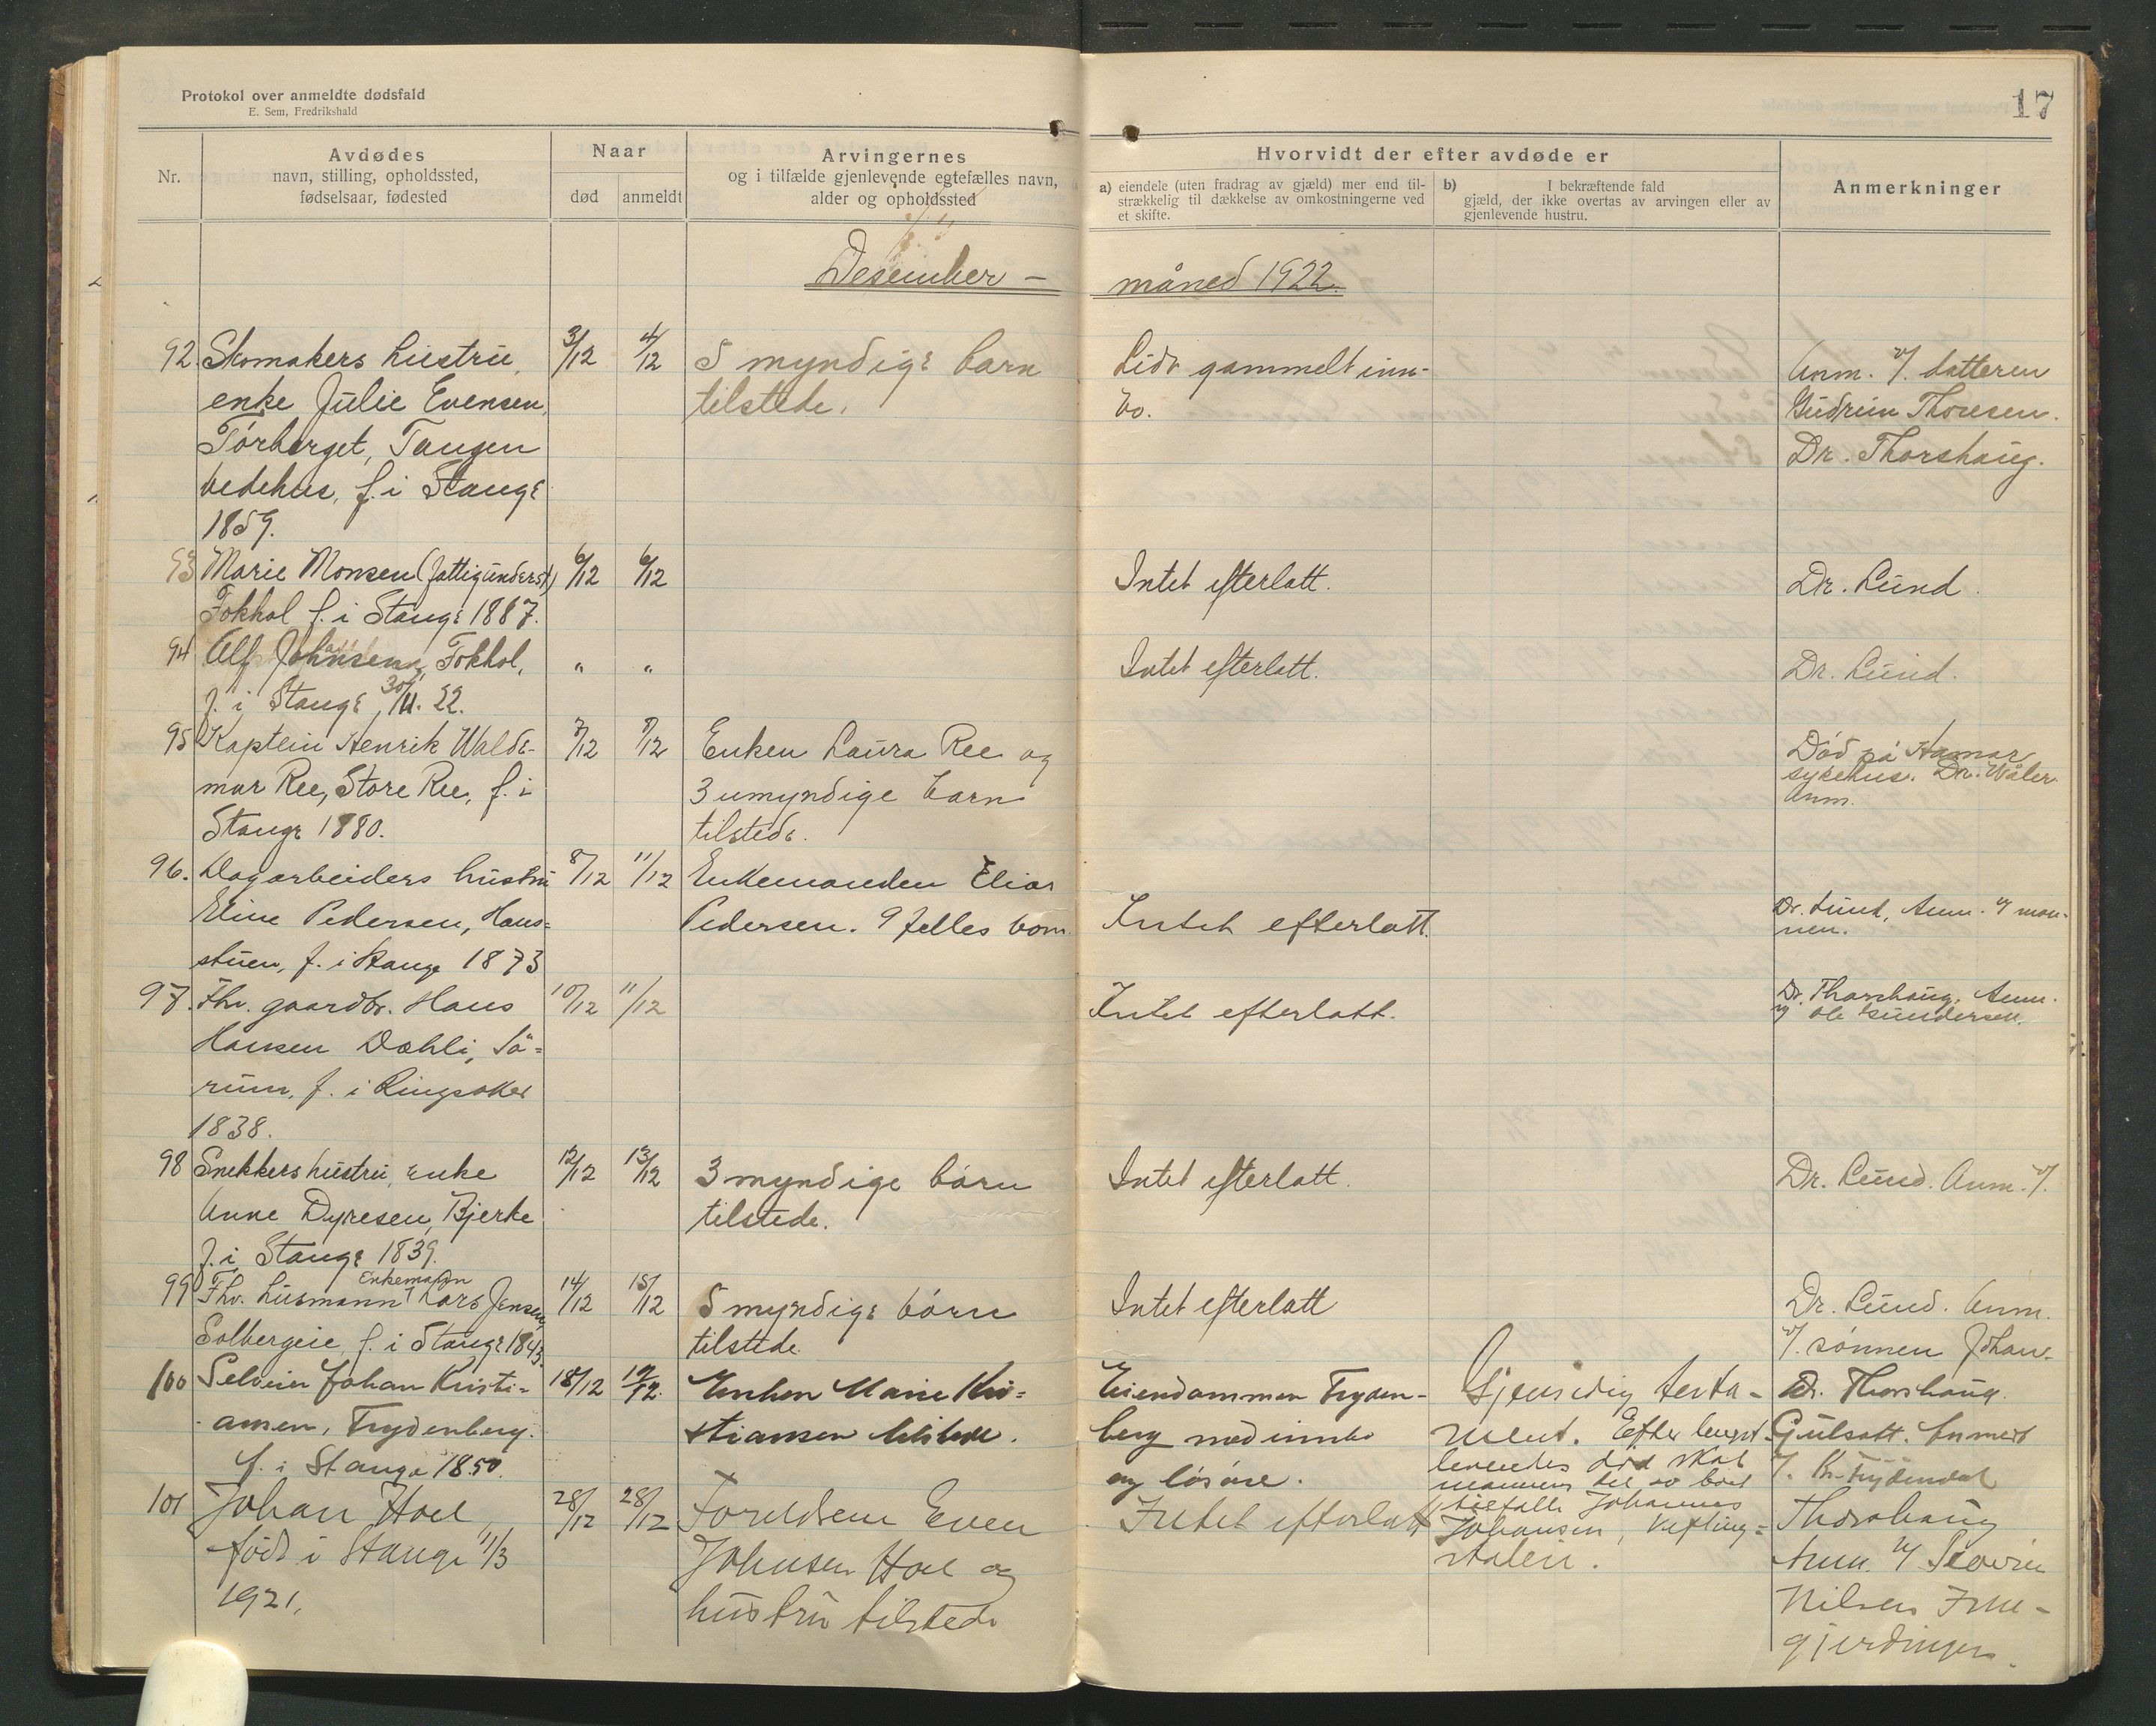 Protokol over anmeldte dødsfald
E. Sem, Fredrikshald
17
Nr.
Avdødes
navn, stilling, opholdssted,
fødselsaar, fødested
Naar
død
anmeldt
Arvingernes
og i tilfælde gjenlevende egtefælles navn,
alder og opholdssted
Hvorvidt der efter avdøde er
a) eiendele (uten fradrag av gjæld) mer end til-
strækkelig til dækkelse av omkostningerne ved
et skifte.
b) I bekræftende fald
gjæld, der ikke overtas av arvingen eller av
gjenlevende hustru.
Anmerkninger
Desember –
måned 1922.
92. Skomakers hustru,
enke Julie Evensen,
Tørberget, Tangen
bedehus, f. i Stange
1859.
3/12
4/12
5 myndige barn
tilstede.
Lidt gammelt inn-
bo.
Anm. v/. datteren
Gudrun Thoresen.
Dr. Thorshaug.
93 Marie Monsen (fattigunderst)
Fokhol f. i Stange 1887.
6/12
6/12
Intet efterlatt.
Dr. Lund.
94 Alf Johnsen, Fokhol,
f. i Stange, 30/11. 22.
"
"
Intet efterlatt.
Dr. Lund.
95 Kaptein Henrik Walde-
mar Ree, Store Ree, f. i
Stange 1880.
7/12
8/12
Enken Laura Ree og
3 umyndige barn
tilstede.
Død på Hamar
sykehus. Dr. Wåler
Anm.
96. Dagarbeiders hustru
Eline Pedersen, Hans-
stuen, f. i Stange 1873
8/12
11/12
Enkemanden Elias
Pedersen. 9 felles barn.
Intet efterlatt.
Dr. Lund, Anm. v/ man-
nen.
97. Fhv. gaardbr. Hans
Hansen Dæhli, Sø-
rum, f. i Ringsaker
1838.
10/12
11/12
Intet efterlatt.
Dr. Thorshaug. Anm.
v/ Ole Gundersen.
98 Snekkers hustru, enke
Anne Dyresen, Bjerke
f. i Stange 1839.
12/12
13/12
3 myndige børn
tilstede.
Intet efterlatt.
Dr. Lund. Anm. v/.
99 Fhv. husmann Enkemann Lars Jensen,
Solbergeie, f. i Stange 1843.
14/12
15/12
5 myndige børn
tilstede.
Intet efterlatt
Dr. Lund. Anm.
v/. sønnen Johan.
100 Selveier Johan Kristi-
ansen, Frydenberg.
f. i Stange 1850.
18/12
19/12.
Enken Marie Kri-
stiansen tilstede.
Eiendommen Fryden-
berg med innbo
og løsøre.
Gjensidig testa-
ment. Efter lengst-
levendes død skal
mannens del av boet
tilfalle Johannes
Johansen,
Dr. Thorshaug.
Anmeldt
v/. Kr. Frydendal
101 Johan Hoel,
født i Stange 11/3
1921.
28/12
28/12
Foreldrene Even
Johnsen Hoel og
hustru tilstede
Intet efterlatt
Thorshaug
Anm. v/
Nilsen
gjerdingen.